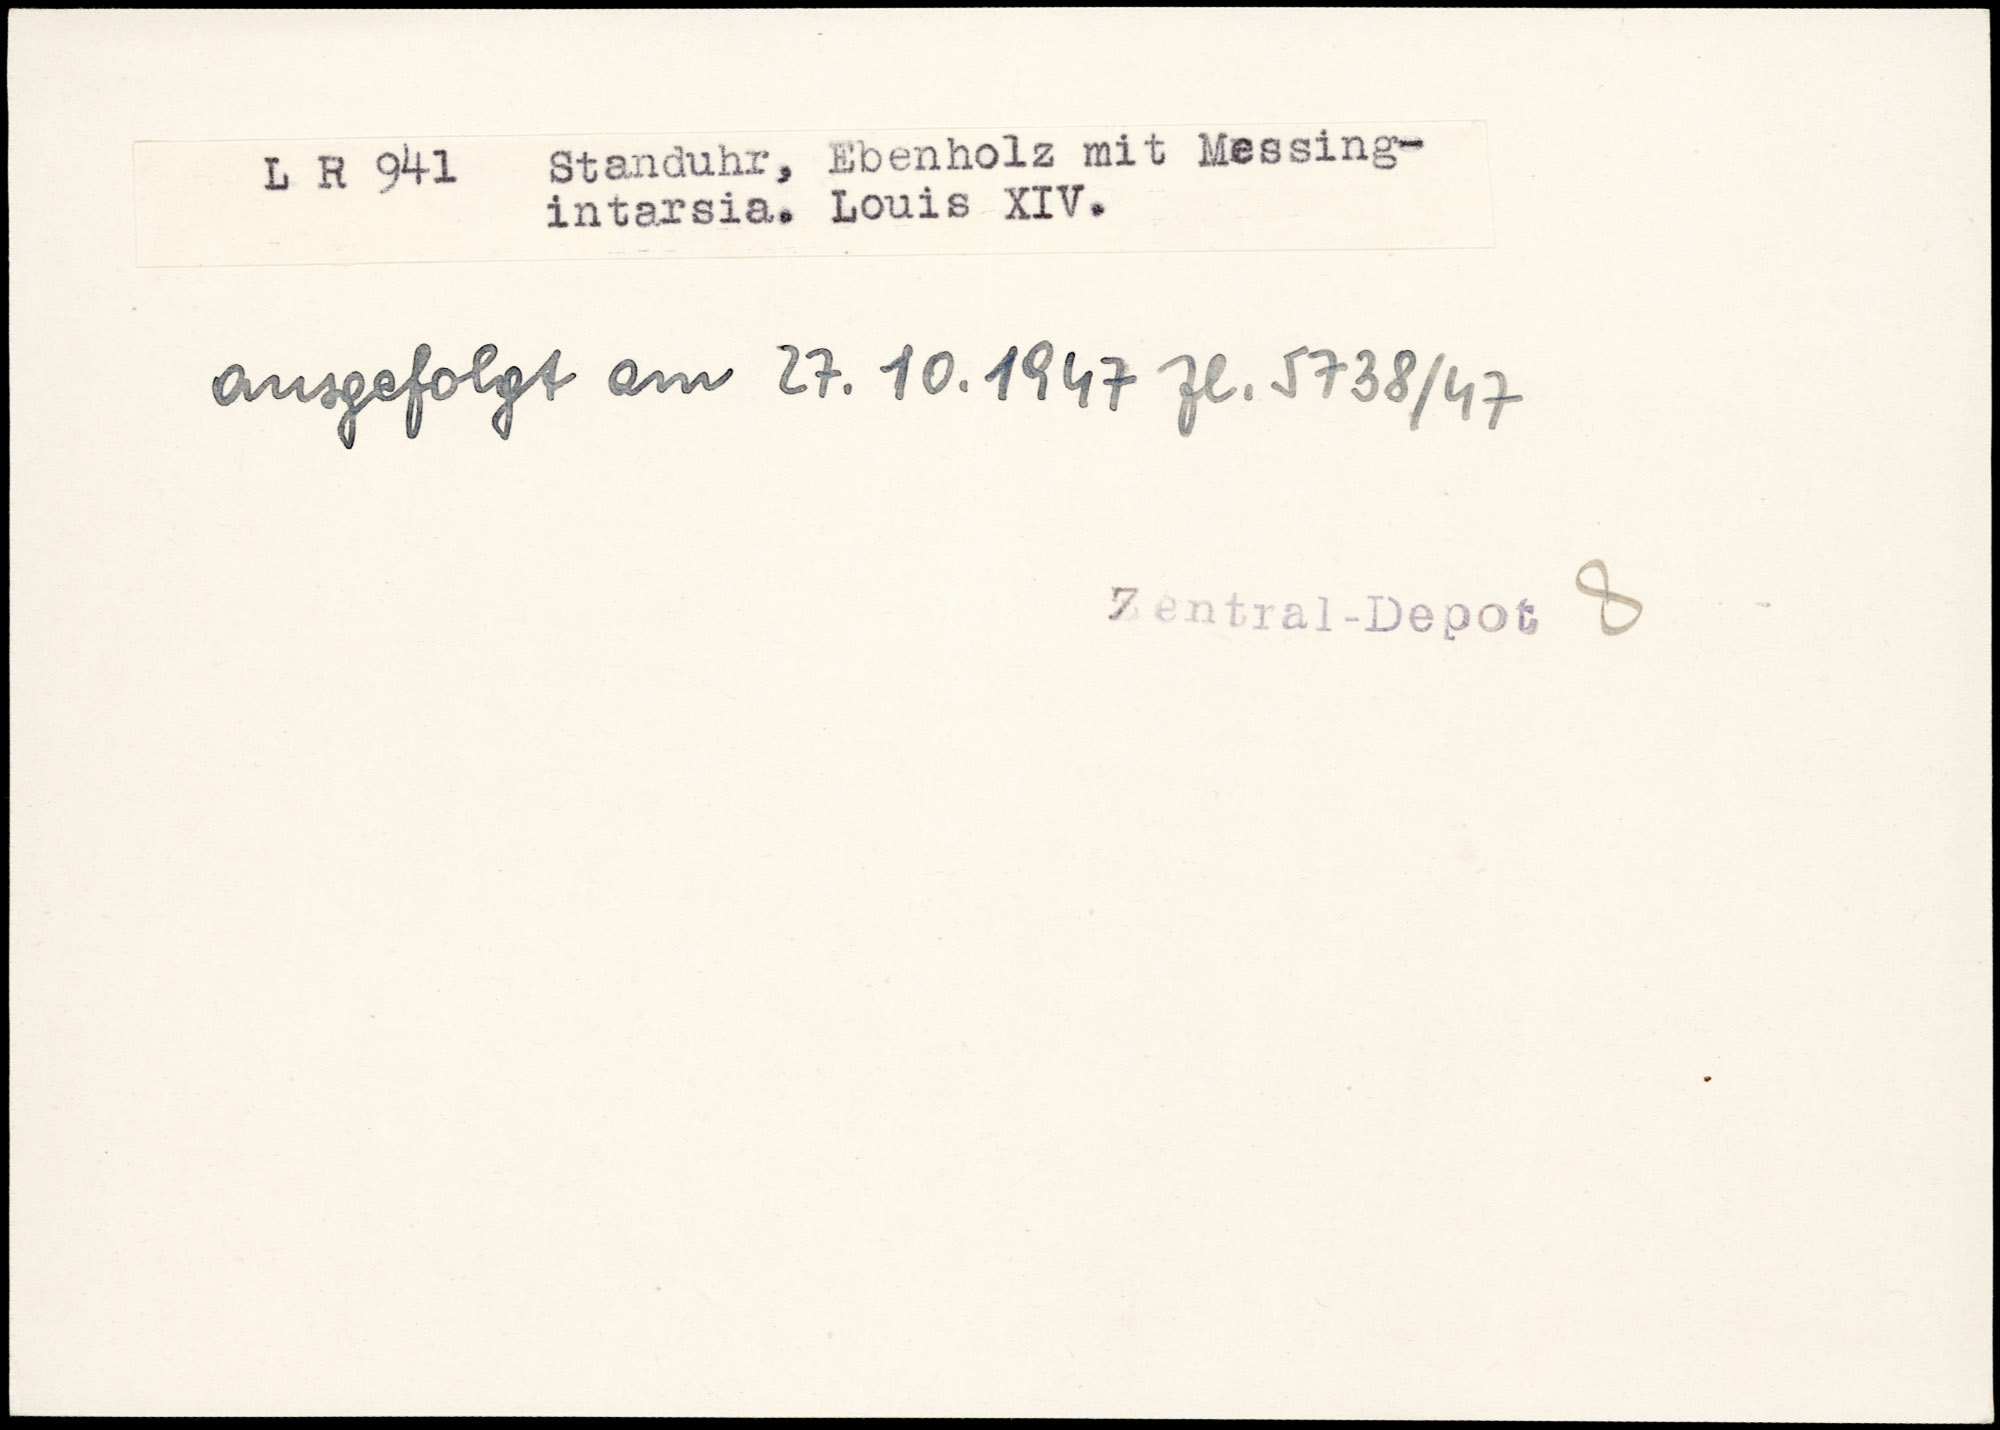 L R 941 Standuhr, Ebenholz mit Messing-
intarsia. Louis XIV.
ausgefolgt am 27. 10. 1947 Zl. 5738/47
Zentral-Depot 8